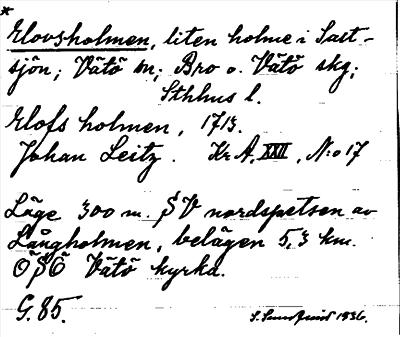 *
Elovsholmen, liten holme i Sast-
sjön; Vätö sn; Bro o. Vätö skg;
Sthlms l.
Elofs holmen, 1713.
Johan Leitz. Kr. A, XXII, N:o 17
Läge 300 m. SV nordspetsen av
Långholmen, belägen 5,3 km.
OSO Vätö kyrka.
G.85.
S. Sundquist 1936.